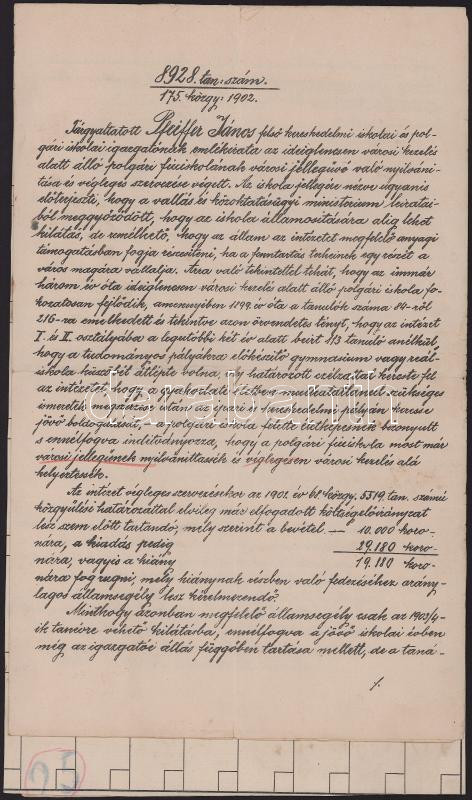 8928. tan: szám.
175. közgy: 1902.
Tárgyaltatott Pfeiffer János felső kereskedelmi iskolai és pol-
gári iskolai igazgatónak emlékirata az ideiglenesen városi kezelés
alatt álló polgári fiuiskolának városi jellegüvé való nyilváni-
tása és végleges szervezése végett. Az iskola jellegére nézve ugyanis
előterjeszti, hogy a vallás és közoktatásügyi ministerium leiratai-
ból meggyőződött, hogy az iskola államositására alig lehet
kilátás, de remélhető, hogy az állam az intézetet megfelelő anyagi
támogatásban fogja részesiteni, ha a fenntartás terheinek egy részét a
város magára vállalja. Arra való tekintettel tehát, hogy az immár
három év óta ideiglenesen városi kezelés alatt álló polgári iskola fo-
kozatosan fejlődik, amennyiben 1899. év óta a tanulók száma 84-ről
216-ra emelkedett és tekintve azon örvendetes tényt, hogy az intézet
I. és II. osztályába a legutóbbi két év alatt beirt 113 tanuló anélkül,
hogy a tudományos pályákra előkészitő gymnasium vagy reál-
iskola küszöbét átlépte volna, így határozott célzattal kereste fel
az intézetet, hogy a gyakorlati életben mulhatatlanul szükséges
ismeretek megszerzése után az ipari és kereskedelmi pályán keresse
jövő boldogulását, a polgári iskola feltétlen életképesnek bizonyult
s ennélfogva inditványozza, hogy a polgári fiuiskola most már
városi jellegünek nyilvánittassék és véglegesen városi kezelés alá
helyeztessék.
Az intézet végleges szervezésekor az 1901. év 68. közgy. 5319. tan. számu
közgyülési határozattal elvileg már elfogadott költségelőirányzat
lesz szem előtt tartandó, mely szerint a bevétel — 10.000 koro-
nára, a kiadás pedig 29.180 koro-
nára, vagyis a hiány 19.180 koro-
nára fog rugni, mely hiánynak részben való fedezéséhez arány-
lagos államsegély lesz kérelmezendő.
Minthogy azonban megfelelő államsegély csak az 1903/4-
ik tanévre vehető kilátásba, ennélfogva a jövő iskolai évben
még az igazgatói állás függőben tartása mellett, de a taná-
f.
95
darabanth